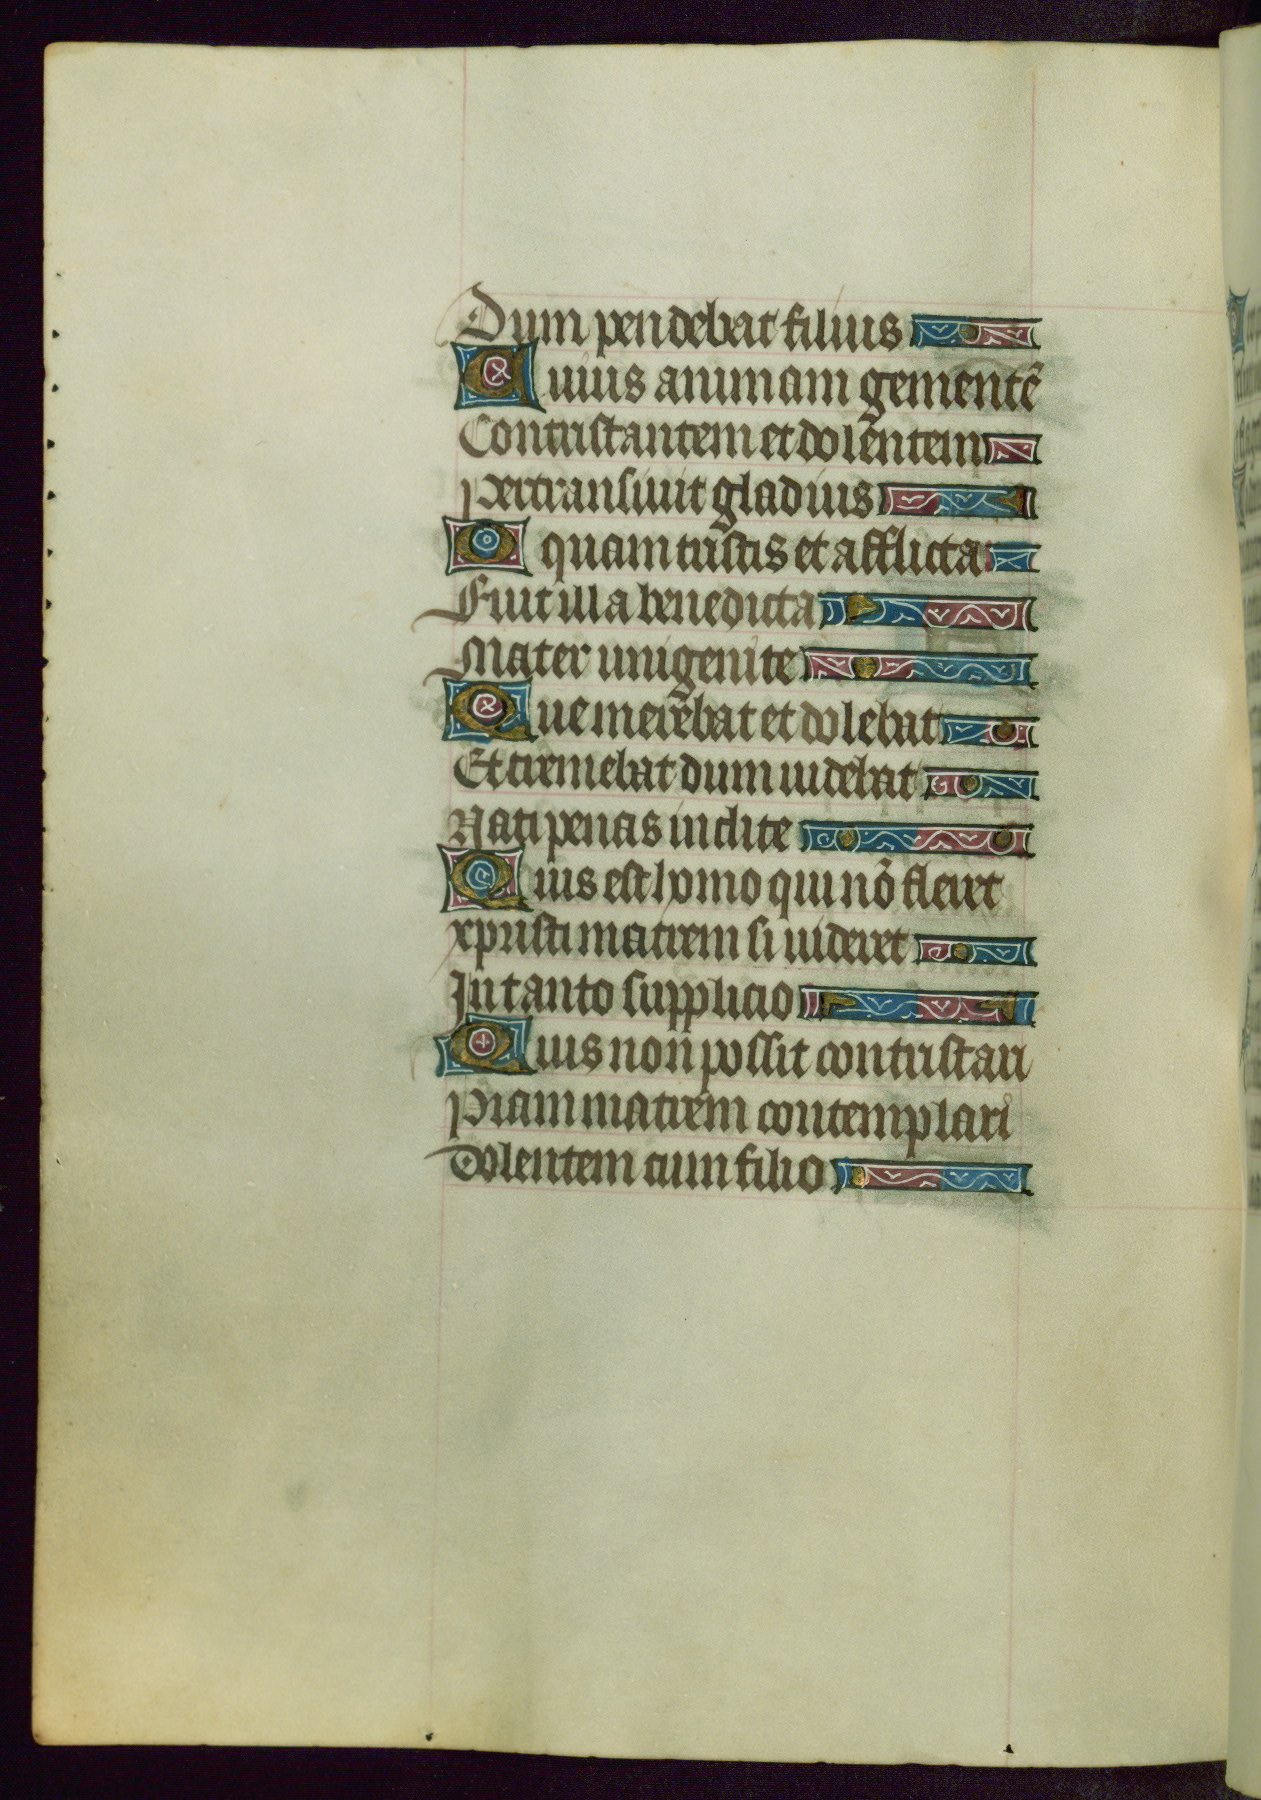 Dum pendebat filius
Cuius animam gementẽ
Contristantem et dolentem
pertransiuit gladius
O quam tristis et afflicta
Fuit illa benedicta
Mater unigenite
Que merebat et dolebat
Et tremebat dum uidebat
Nati penas inclite
Quis est homo qui nõ fleret
xpristi matrem si uideret
In tanto supplicio
Quis non possit contristari
Piam matrem contemplari
dolentem cum filio